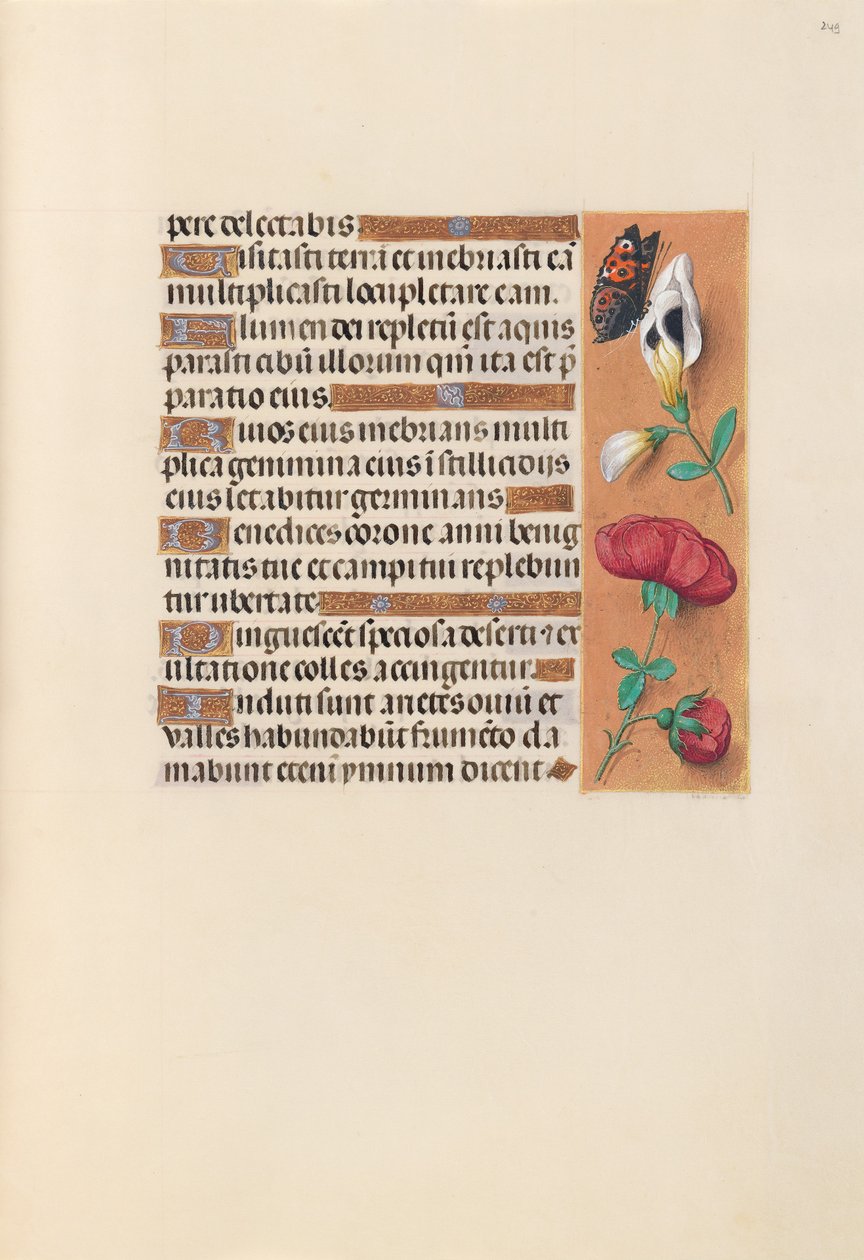 249
pere delectabis.
Uisitasti terrā et inebriasti eā
multiplicasti locupletare eam.
Flumen dei repletū est aquis
parasti cibū illorum qm̄ ita est p̄
paratio eius.
Riuos eius inebrians multi
plica genimina eius ī stillicidijs
eius letabitur germinans.
Benedices corone anni benig
nitatis tue et campi tui replebun
tur ubertate.
Pinguescēt speciosa deserti ⁊ ex
ultatione colles accingentur.
Induti sunt arietes ouiū et
valles habundabūt frumēto cla
mabunt etenī ymnum dicent.